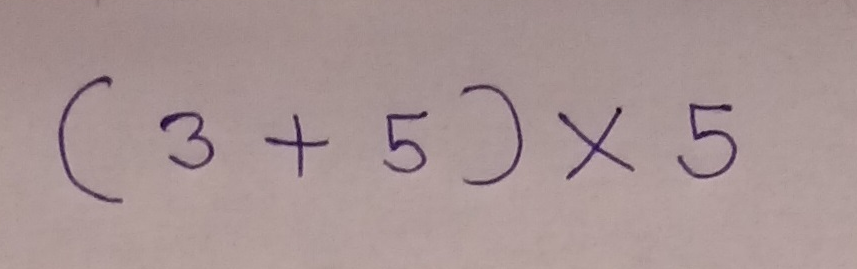 (3 + 5) × 5